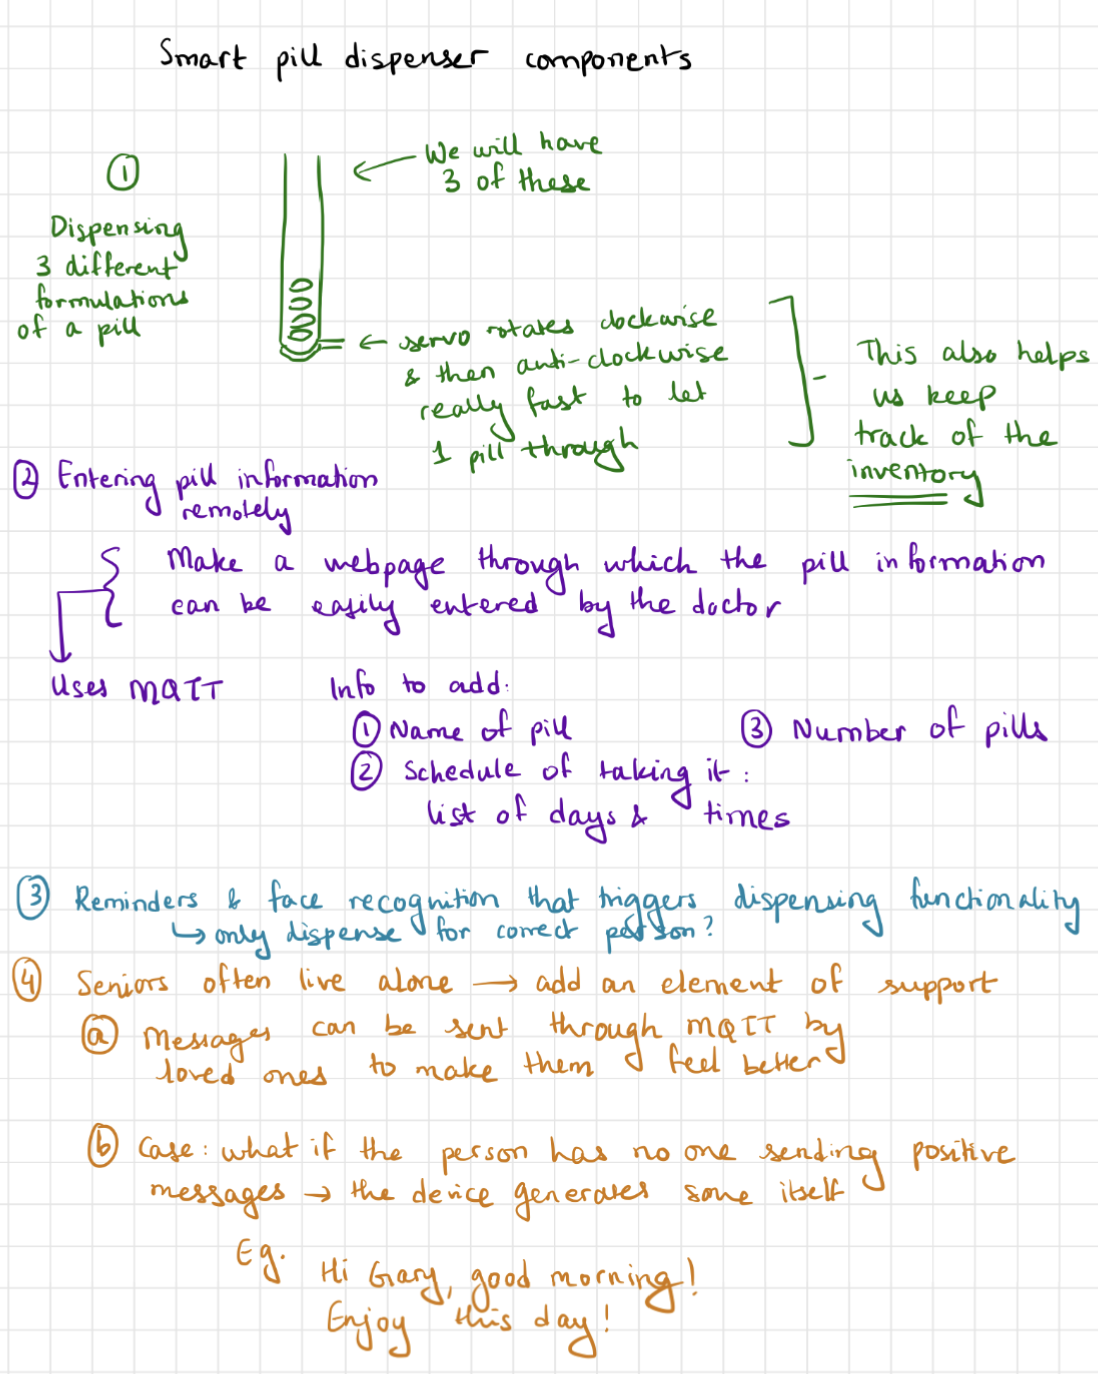 Smart pill dispenser components
①
Dispensing
3 different
formulations
of a pill
← We will have
3 of these
← servo rotates clockwise
& then anti-clockwise
really fast to let
1 pill through
This also helps
us keep
track of the
inventory
② Entering pill information
remotely
Make a webpage through which the pill information
can be easily entered by the doctor
Uses MQTT
Info to add:
① Name of pill
② Schedule of taking it :
list of days & times
③ Number of pills
③ Reminders & face recognition that triggers dispensing functionality
↳ only dispense for correct person?
④ Seniors often live alone → add an element of support
ⓐ Messages can be sent through MQTT by
loved ones to make them feel better
ⓑ Case: what if the person has no one sending positive
messages → the device generates some itself
Eg. Hi Gary, good morning!
Enjoy this day!